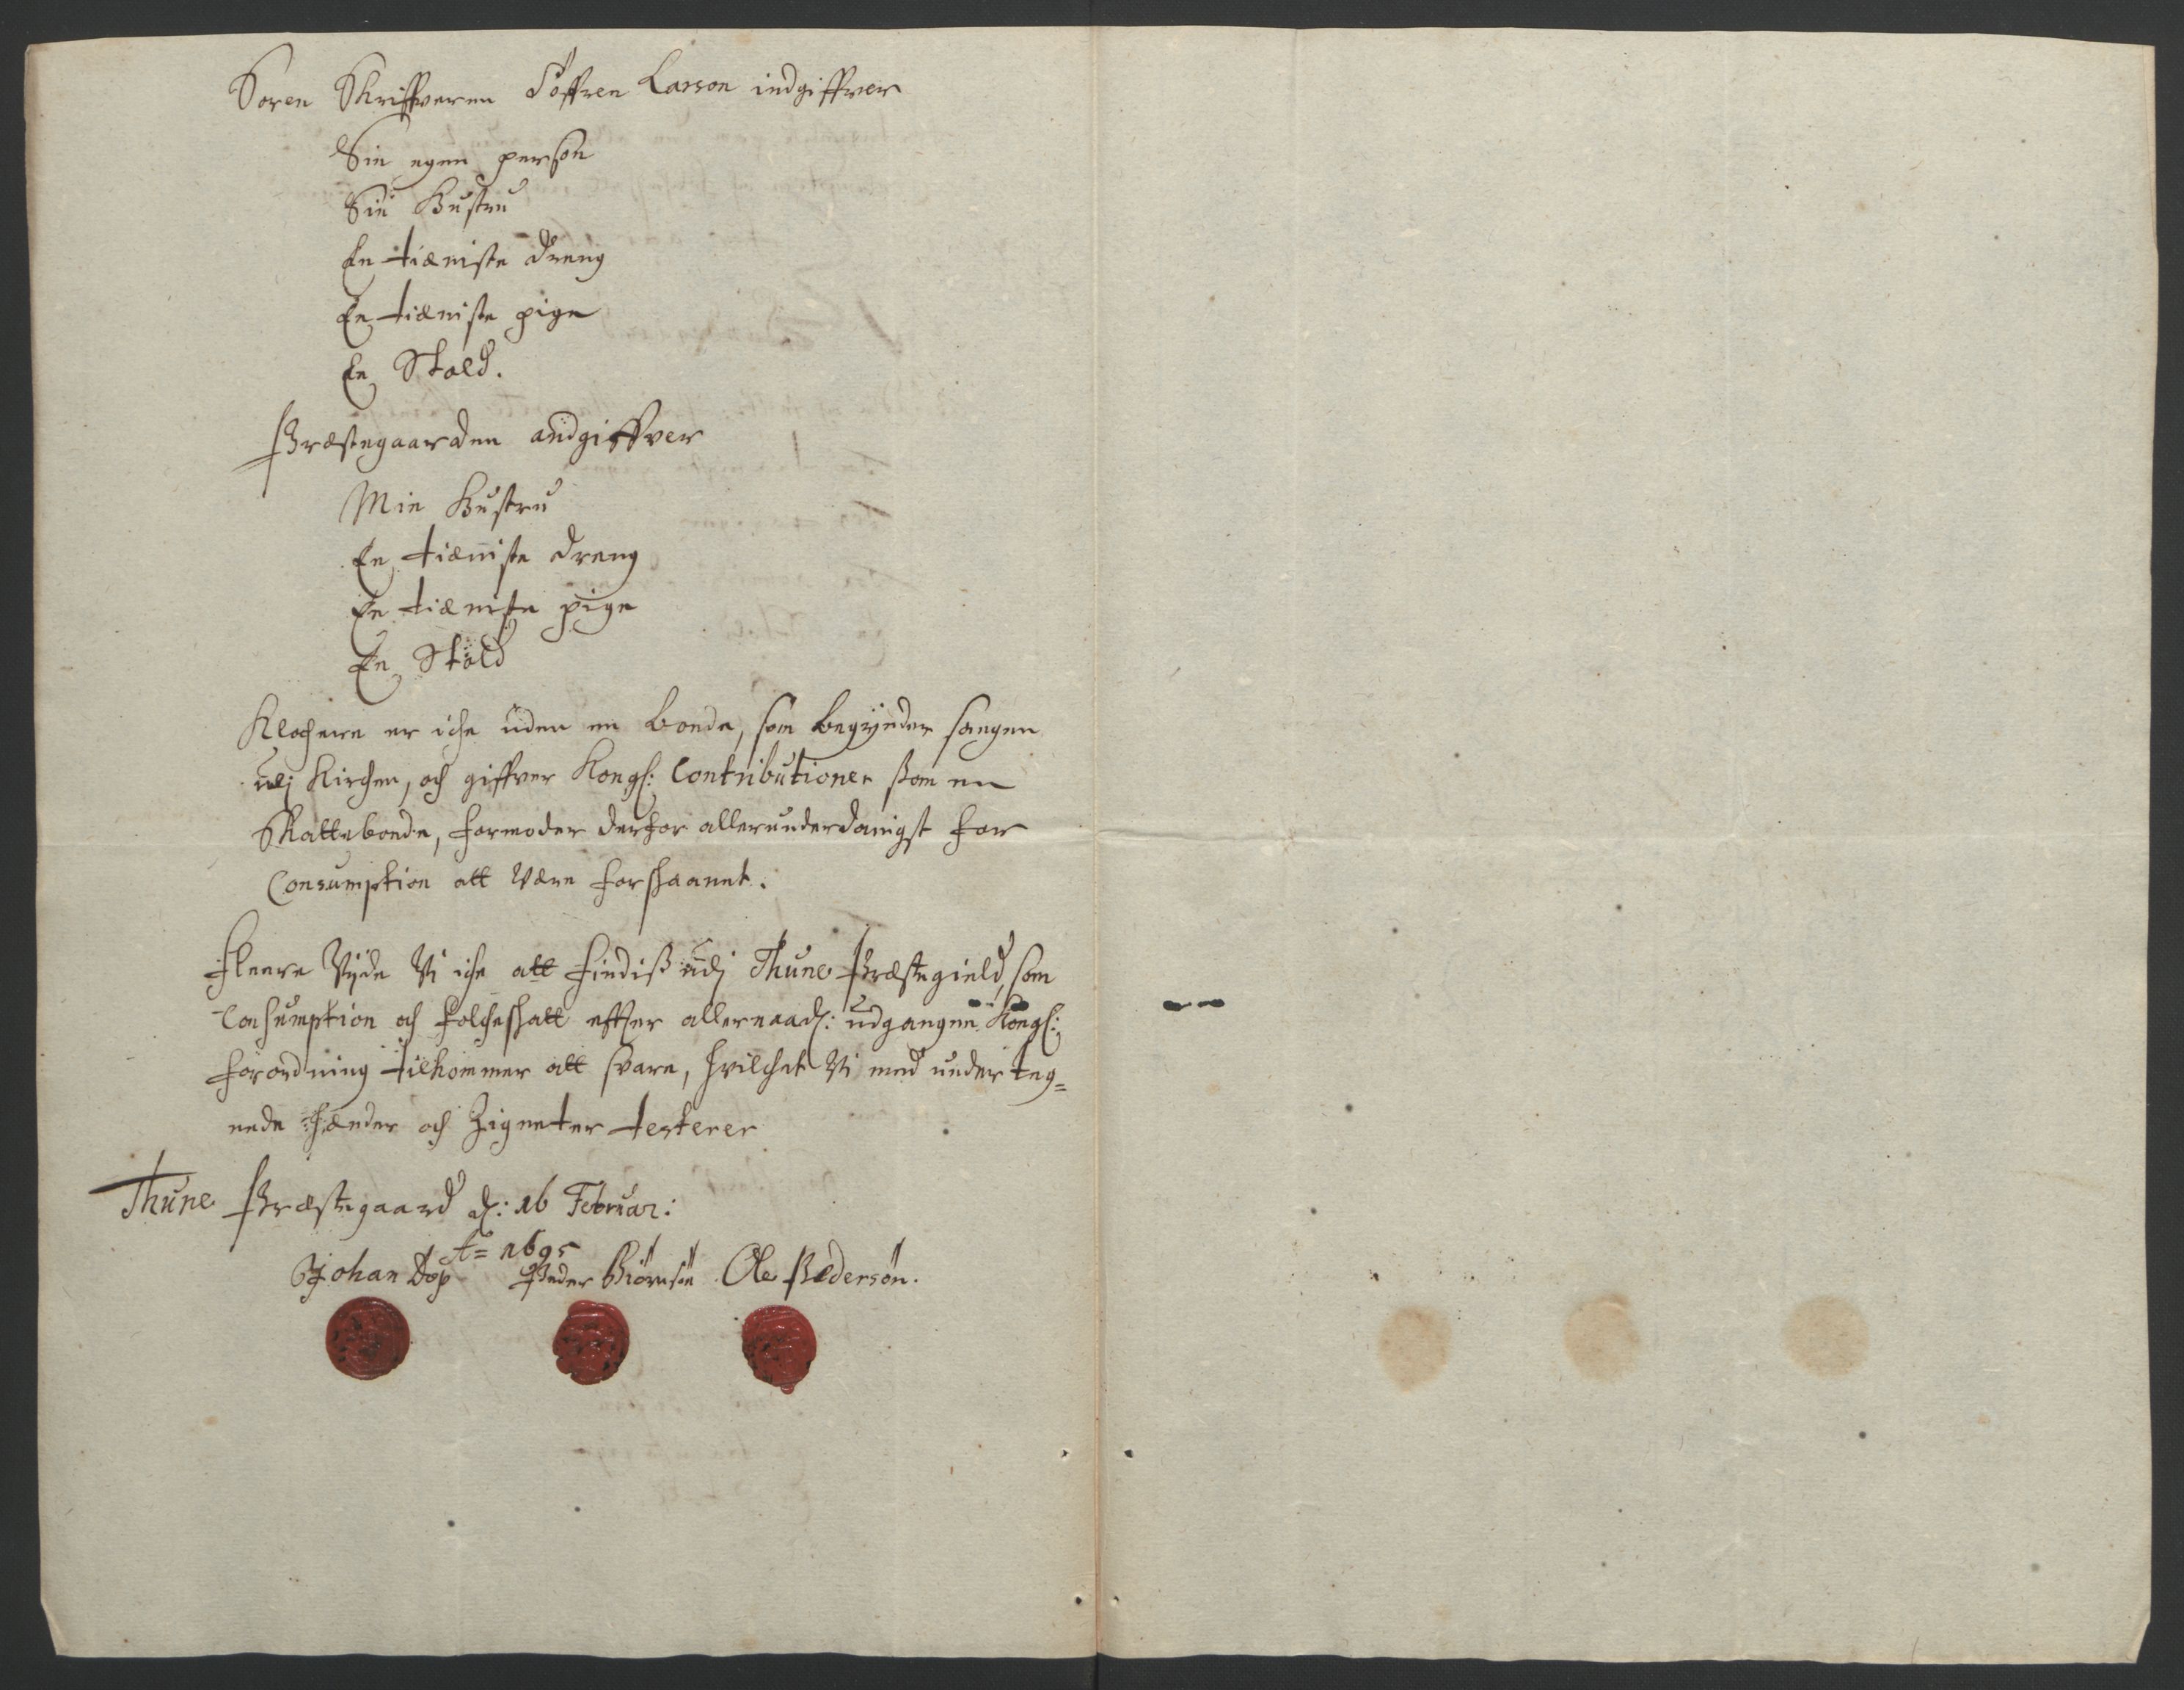 Soren Skriffveren Söffren Larson indgiffver
Sin egen person
Sin Hustru
En tiæniste dreng
En tiæniste pige
En Stald.
Præstegaarden andgiffver
Min Hustru
En tiæniste dreng
En tiæniste pige
En Stald
Klochere er iche uden en bonde, som begynder sangen
udj Kirchen, och giffver Kongl: Contributioner som en
Skattebonde, formoder derfor allerunderdanigst for
Consumption att være forskaanet.
Fleere Vide Vi iche att findiss udj Thune Præstegield, som
Consumption och folcheskatt effter allernaad: udgangen Kongl:
forordning tilkommer att svare, hvilchet Vi med underteg=
nede hænder och Zigneter testerer
Thune Præstegaard d: 16 Februar:
A= 1695
Johan Dop Peder Biörnsön Ole Pedersön.